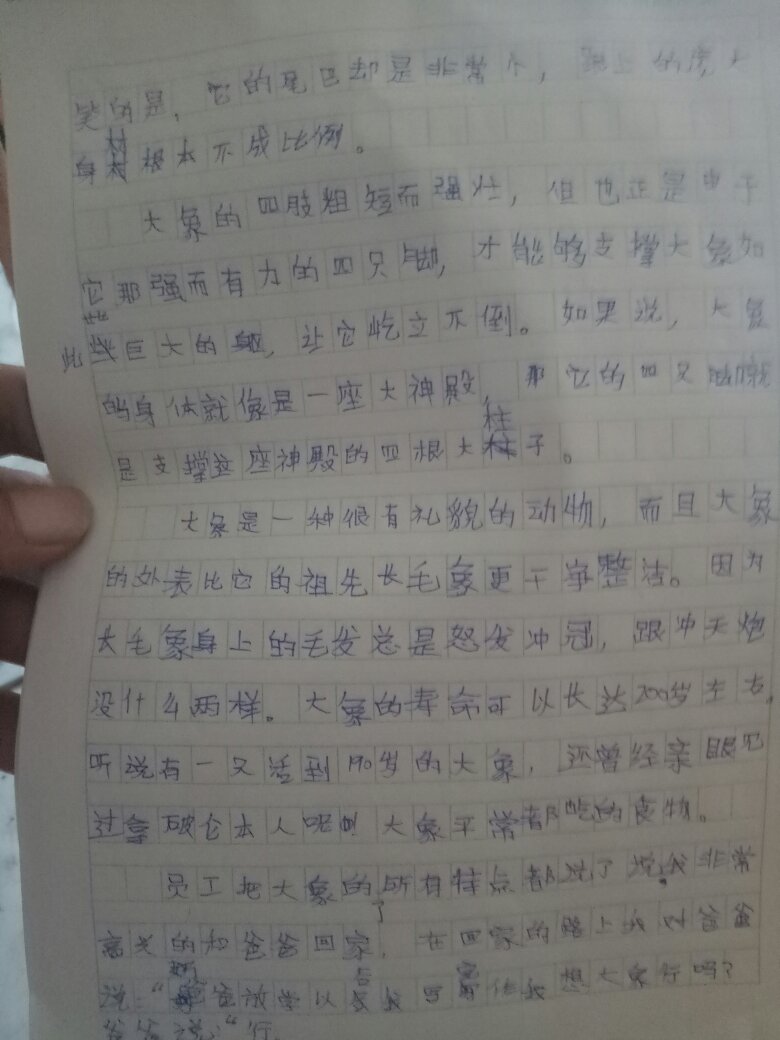 笑的是，它的尾巴却是非常小，跟上的庞大
身材根本不成比例。
大象的四肢粗短而强壮，但也正是由于
它那强而有力的四只脚，才能够支撑大象如
此巨大的身躯，让它屹立不倒。如果说，大象
的身体就像是一座大神殿，那它的四只脚就
是支撑这座神殿的四根大柱子。
大象是一种很有礼貌的动物，而且大象
的外表比它的祖先长毛象更干净整洁。因为
长毛象身上的毛发总是怒发冲冠，跟冲天炮
没什么两样。大象的寿命可以长达200岁左右，
听说有一只活到190岁的大象，还曾经亲眼见
过拿破仑本人呢！大象平常都吃的食物。
员工把大象的所有特点都说了说，我非常
高兴的和爸爸回家了，在回家的路上我对爸爸
说：“爸爸放学以后我写作我想大象行吗？
爸爸说：“行